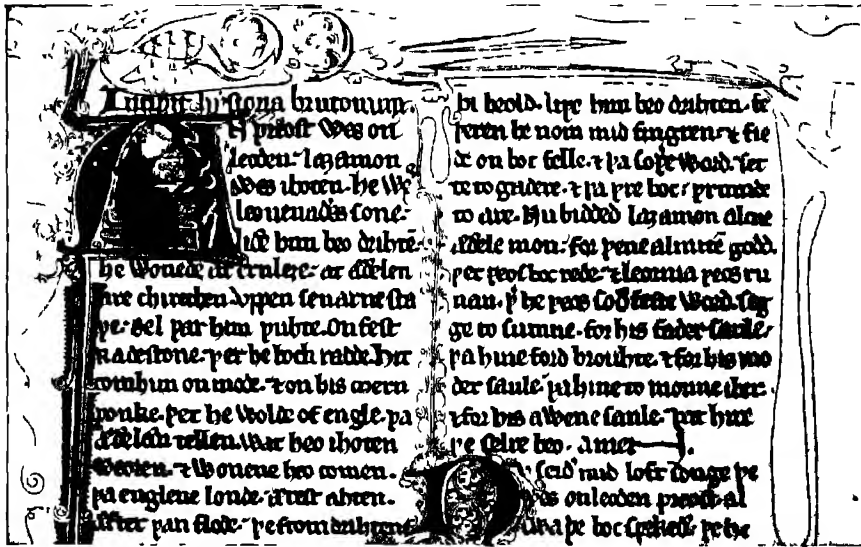 Incipit hystoria brutonum
AN preost wes on
leoden. laȝamon
wes ihoten. he we
leouenaðes sone.
liðe him beo drihtē.
he wonede at ernleȝe. at æðelen
are chirechen. vppen seuarne sta
þe. sel þar him þuhte. On fest
radestone. þer he boch radde. hit
com him on mode. ⁊ on his mern
þonke. þet he wolde of engle. þa
æðelæn tellen. wat heo ihoten
weoren. ⁊ wonene heo comen.
þa englene londe. ærest ahten.
æfter þan flode. þe from drihtene
bi heold. liþe him beo drihten. fe
þeren he nom mid fingren. ⁊ fie
de on boc felle. ⁊ þa soþe word. set
te to gadere. ⁊ þa þre boc. þrumde
to are. Nu bidded laȝamon alcne
æðele mon. for þene almitē godd.
þet þeos boc rede. ⁊ leornia þeos ru
nan. þ̄ he þeos soðfeste word. seg
ge to sumne. for his fader saule.
þa hine ford brouhte. ⁊ for his mo
der saule. þa hine to monne iber.
⁊ for his awene saule. þat hire
þe selre beo. Amen.
Nv seið mid loft songe þe
wes on leoden preost. al
swa þe boc spekeð. þe he